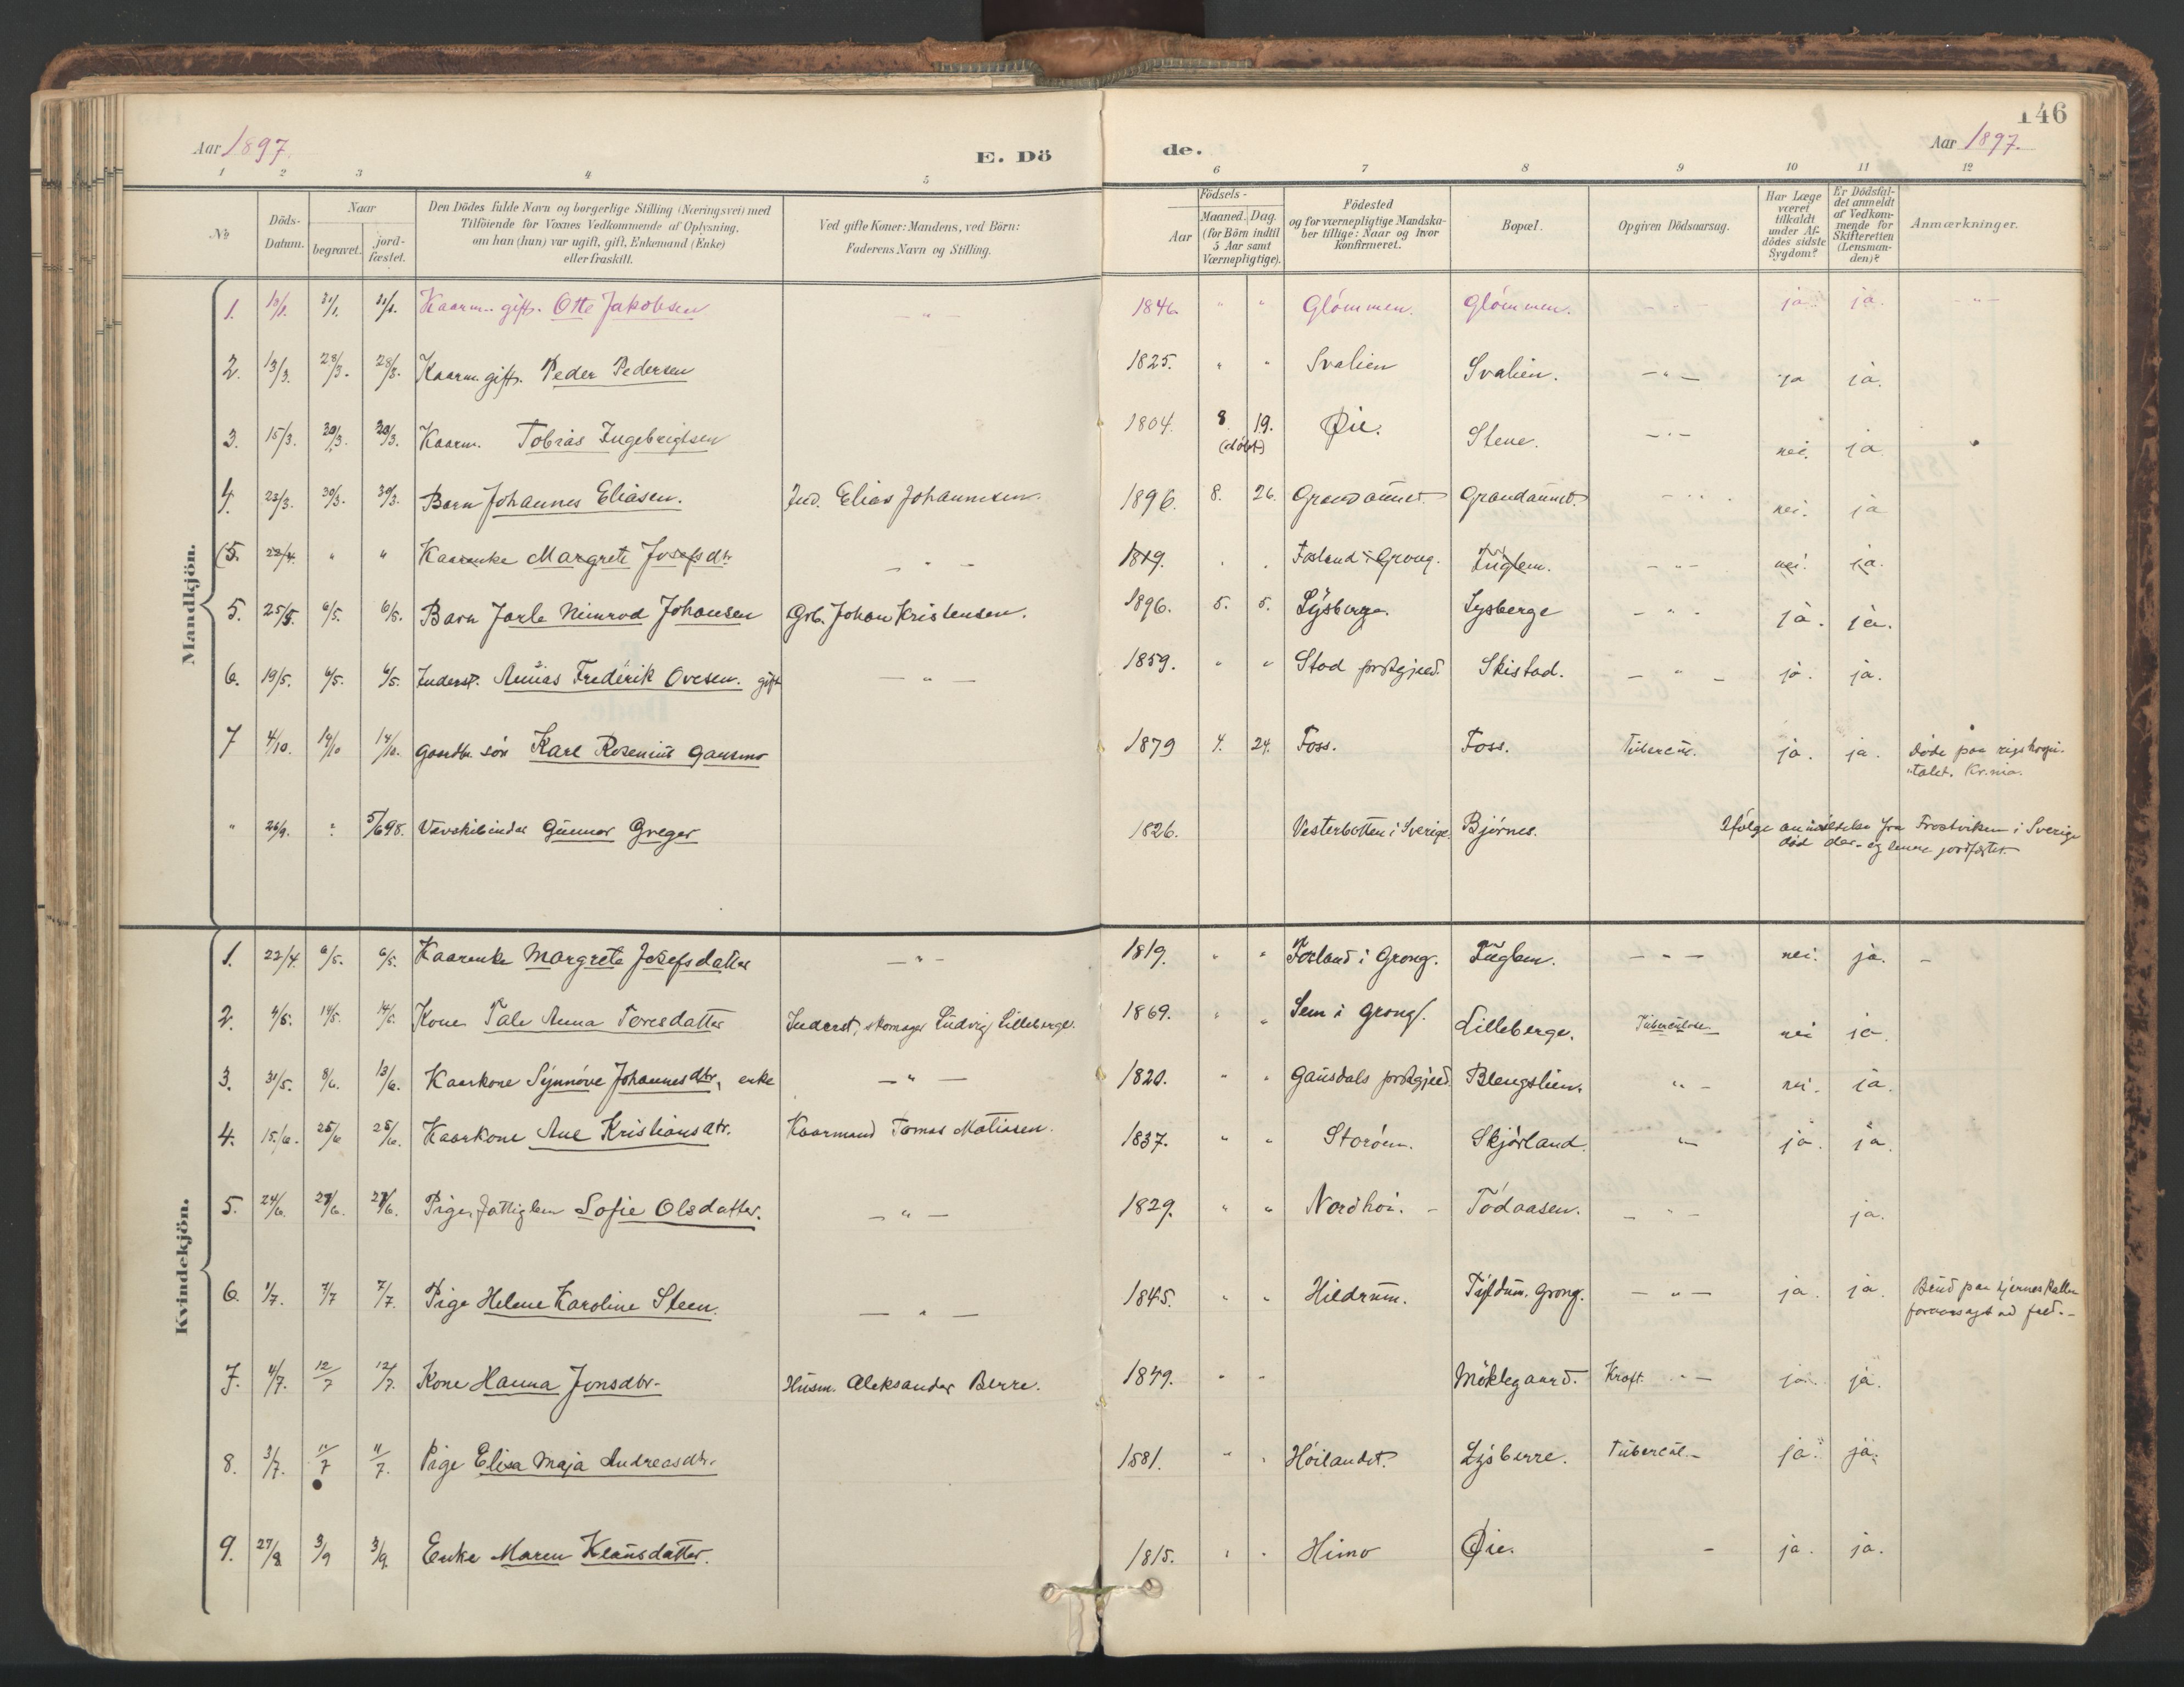 146
Aar 1897.
E. Dö
de.
Aar 1897.
1 2 3 4 5 6 7 8 9 10 11 12
No
Döds-
Datum.
Naar
begravet.
jord-
fæstet.
Den Dödes fulde Navn og borgerlige Stilling (Næringsvei) med
Tilföiende for Voxnes Vedkommende af Oplysning,
om han (hun) var ugift, gift, Enkemand (Enke)
eller fraskilt.
Ved gifte Koner: Mandens, ved Börn:
Faderens Navn og Stilling.
Födsels-
Aar
Maaned. Dag.
(for Börn indtil
5 Aar samt
Værnepligtige).
Födested
og for værnepligtige Mandska-
ber tillige: Naar og hvor
Konfirmeret.
Bopæl.
Opgiven Dödsaarsag.
Har Læge
været
tilkaldt
under Af-
dödes sidste
Sygdom?
Er Dödsfal-
det anmeldt
af Vedkom-
mende for
Skifteretten
(Lensman-
den)?
Anmærkninger.
Mandkjön.
1. Kaarm. gift. Otte Jakobsen — " — 1846. " " Glömmen. Glömmen. ja. ja. — " —
2. 13/3. 28/3. 28/3. Kaarm. gift. Peder Pedersen 1825. " " Svalien Svalien. — " — ja ja.
3. 15/3. 30/3. 30/3. Kaarm. Tobias Ingebrigtsen 1804. 8 19. (döbt) Øie. Stene. — " — nei. ja.
4. 23/3. 30/3. 30/3. Barn Johannes Eliasen. Ind. Elias Johannesen. 1896. 8. 26. Grandaunet. Grandaunet. nei. ja
(5. 22/4. " " Kaarenke Margrete Josefsdtr — " — 1819. " " Fosland i Grong. Fuglem. — " — nei. ja.
5. 25/5. 6/5. 6/5. Barn Jarle Nimrod Johansen Grb. Johan Kristensen. 1896. 5. 5. Lysberge. Lysberge — " — ja. ja.
6. 19/5. 6/5. 6/5. Inderst. Annias Fredrik Ovesen. gift — " — 1859. " " Stod prstgjeld. Skistad. — " — ja. ja.
7 4/10. 14/10 14/10. Gaardbr. sön Karl Rosenius Gansmo 1879 4. 24. Foss. Foss. Tubercul. ja. ja. döde paa rigshospi-
talet. Kr.nia.
" 26/9. " 5/6 98. Vævskibinder Gunnar Greger 1826. Vesterbotten i Sverige. Björnes. Ifölge anmeldelse fra Frostviken i Sverige
död der og jordfæstet.
Kvindekjön.
1. 22/4. 6/5. 6/5. Kaarenke Margrete Josefsdatter — " — 1819. " " Fosland i Grong. Fuglem. — " — nei. ja. —
2. 14/5. 14/5. Kone Tale Anna Toresdatter Inderst, skomager Ludvig Lilleberge. 1869. " " Sem i Grong. Lilleberge. Tuberculose. nei ja.
3. 31/5. 8/6. 13/6. Kaarkone Synnöve Johannesdtr, enke — " — 1820. " " Gausdals prstgjeld. Blengslien. " — nei. ja.
4. 15/6. 25/6 25/6. Kaarkone Ane Kristiansdtr. Kaarmand Tomas Matiasen. 1837. " " Storöm. Skjörland. " — ja. ja.
5. 24/6. 27/6. 27/6. Pige, fattiglem Sofie Olsdatter. — " — 1829. " " Nordhöi. — Tödaasen. — " — ja.
6. 1/7. 7/7 7/7. Pige Helene Karoline Steen. — " — 1845. " " Hildrum. Tyldum, Grong. — " — ja. ja. Brud paa hjerneskallen
foraarsaget ved fald. —
7. 4/7. 12/7 12/7. Kone Hanna Jonsdtr. Husm. Aleksander Berre. 1849. " " Möklegaard. Kræft. " — ja. ja.
8. 3/7. 11/7 11/7. Pige Elisa Maja Andreasdtr. 1881. " " Höilandet. Lysberre. Tubercul. — ja. ja.
9. 27/8. 3/9 3/9. Enke Maren Klausdatter. 1815. " " Himo Øie. — ja. ja.